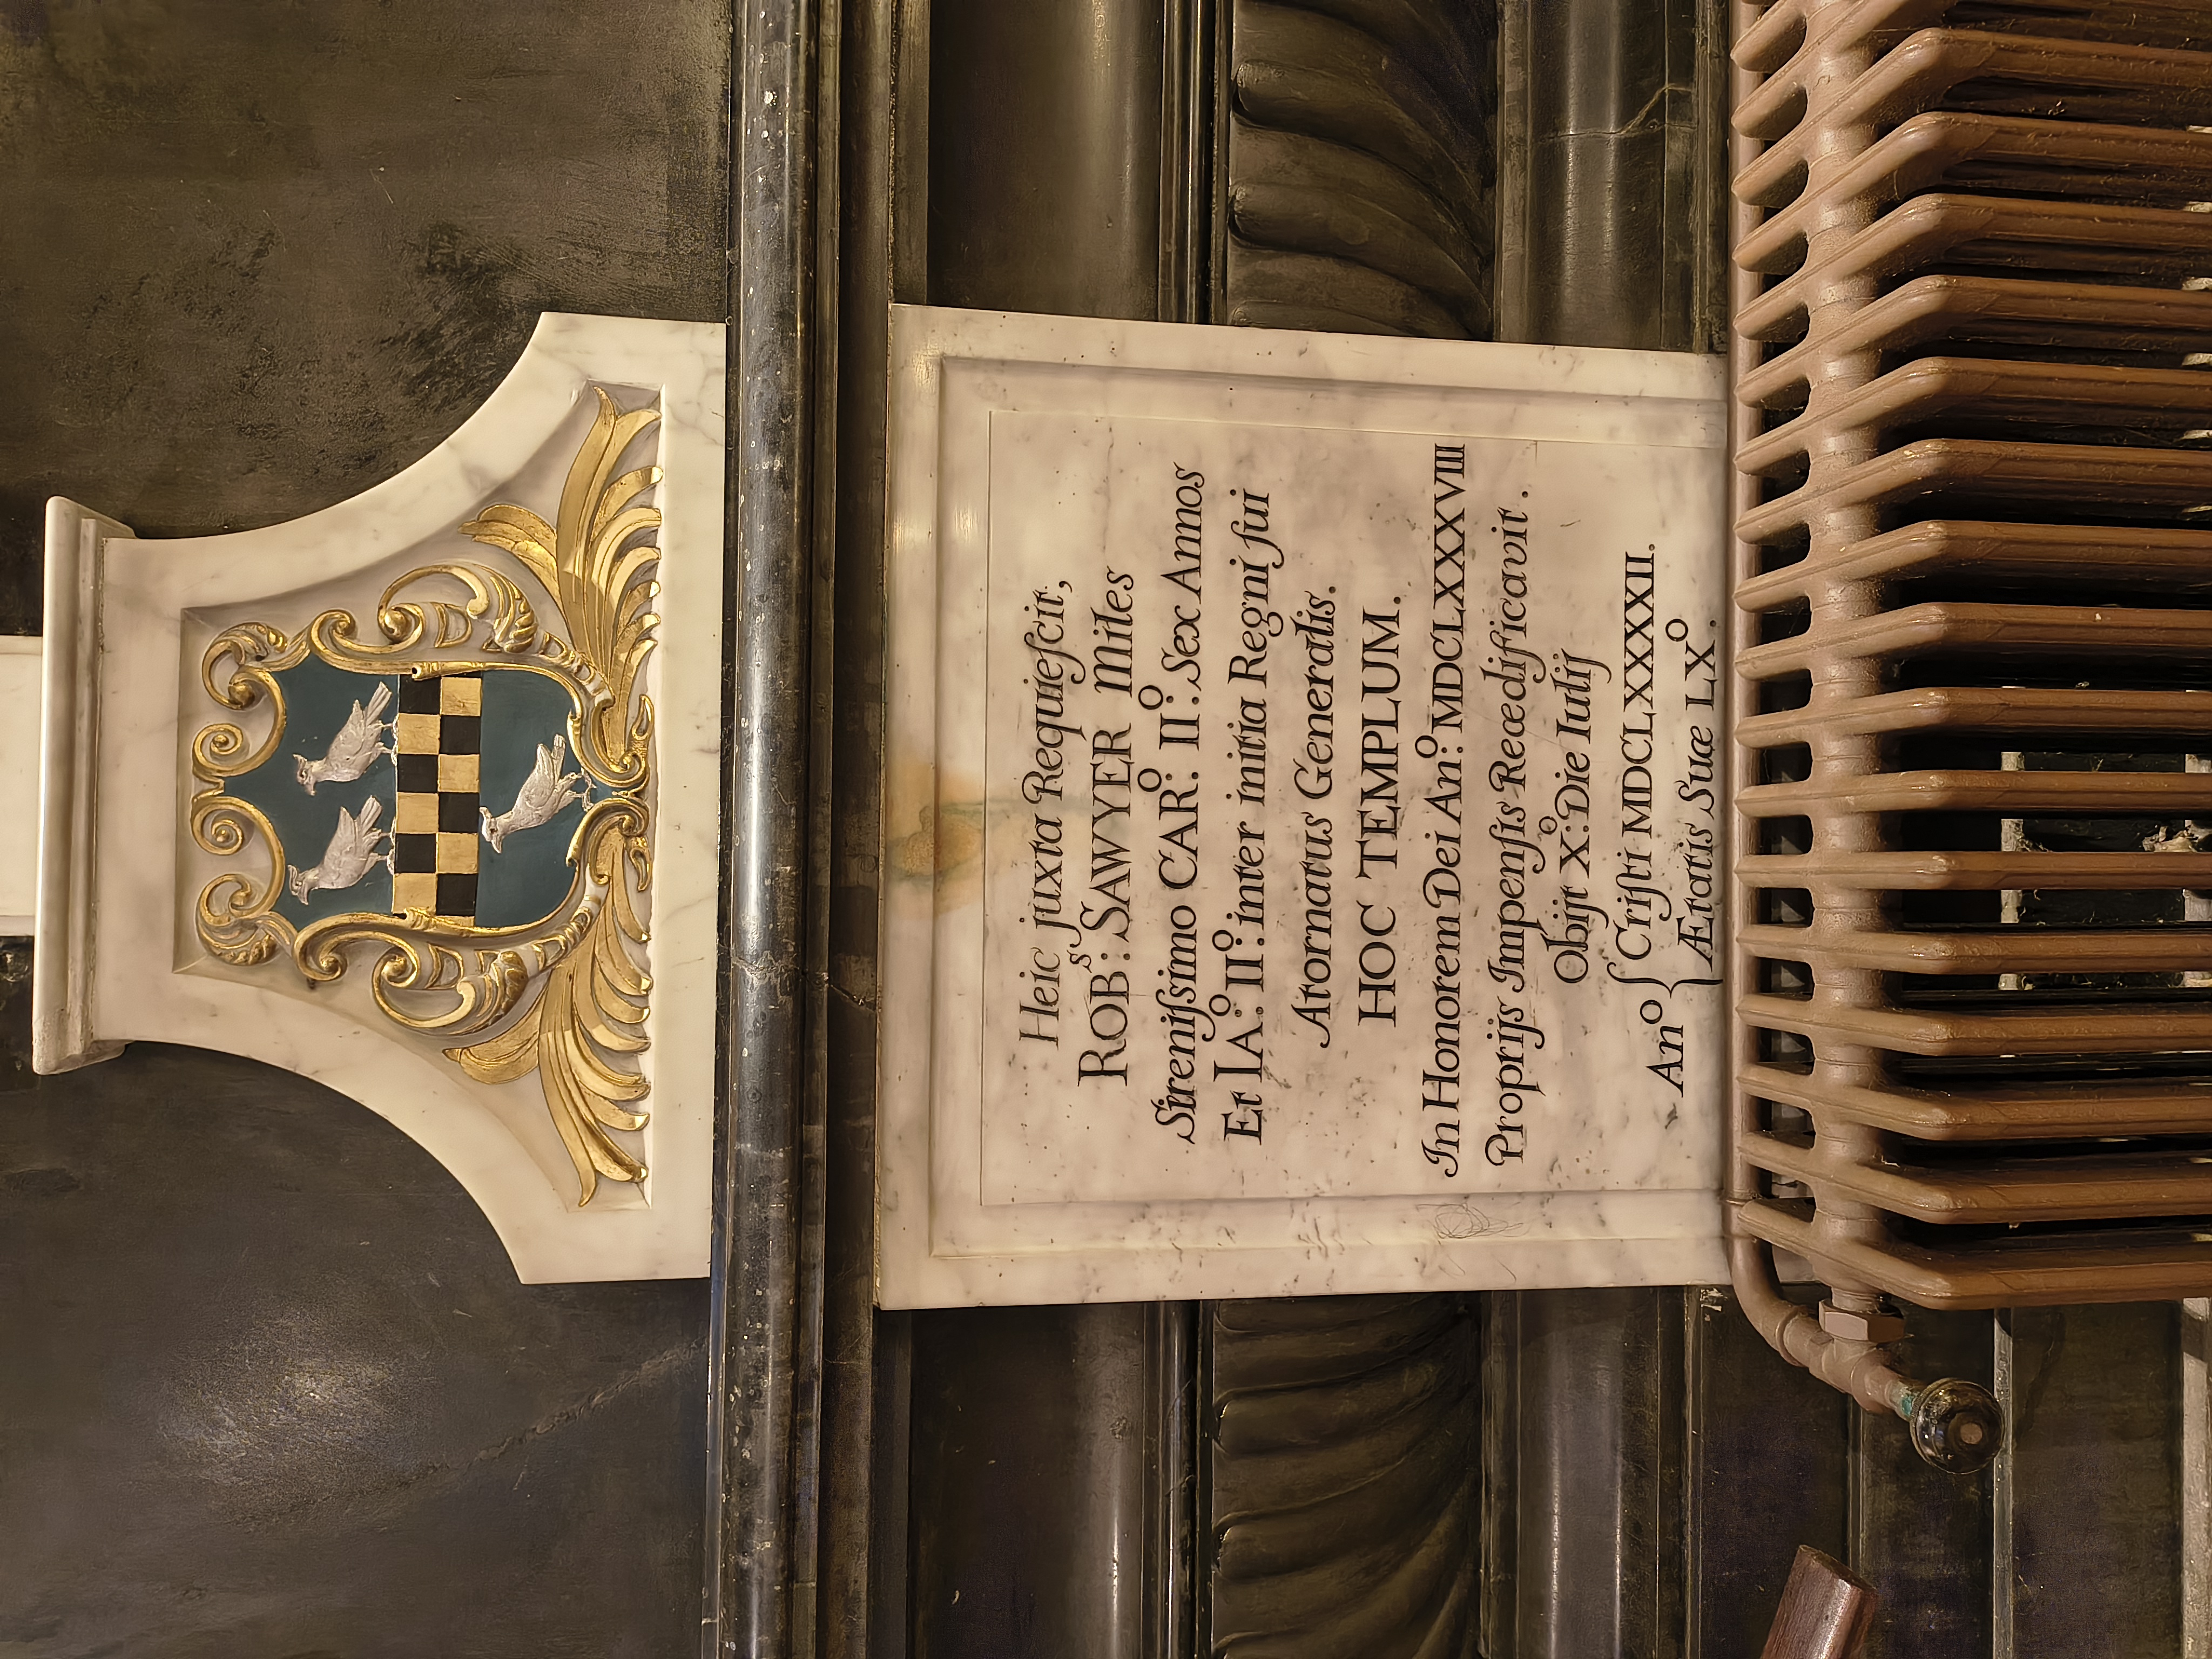 Heic juxta Requieſcit,
ROBˢ: SAWYER miles
Sereniſsimo CARº: IIº: Sex Annos
Et IAº: IIº: inter initia Regni ſui
Atornatus Generalis.
HOC TEMPLUM.
In Honorem Dei Anº: MDCLXXXVIII
Proprijs Impenſis Reædificavit.
Obijt Xº: Die Iulij
Anº { Criſti MDCLXXXXII.
Ætatis Suæ LXº.